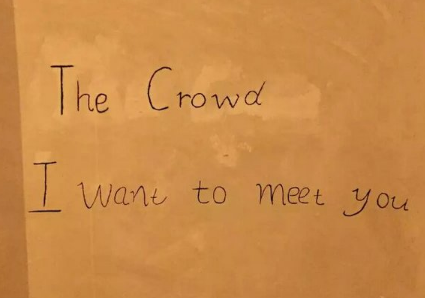 The Crowd
I want to meet you